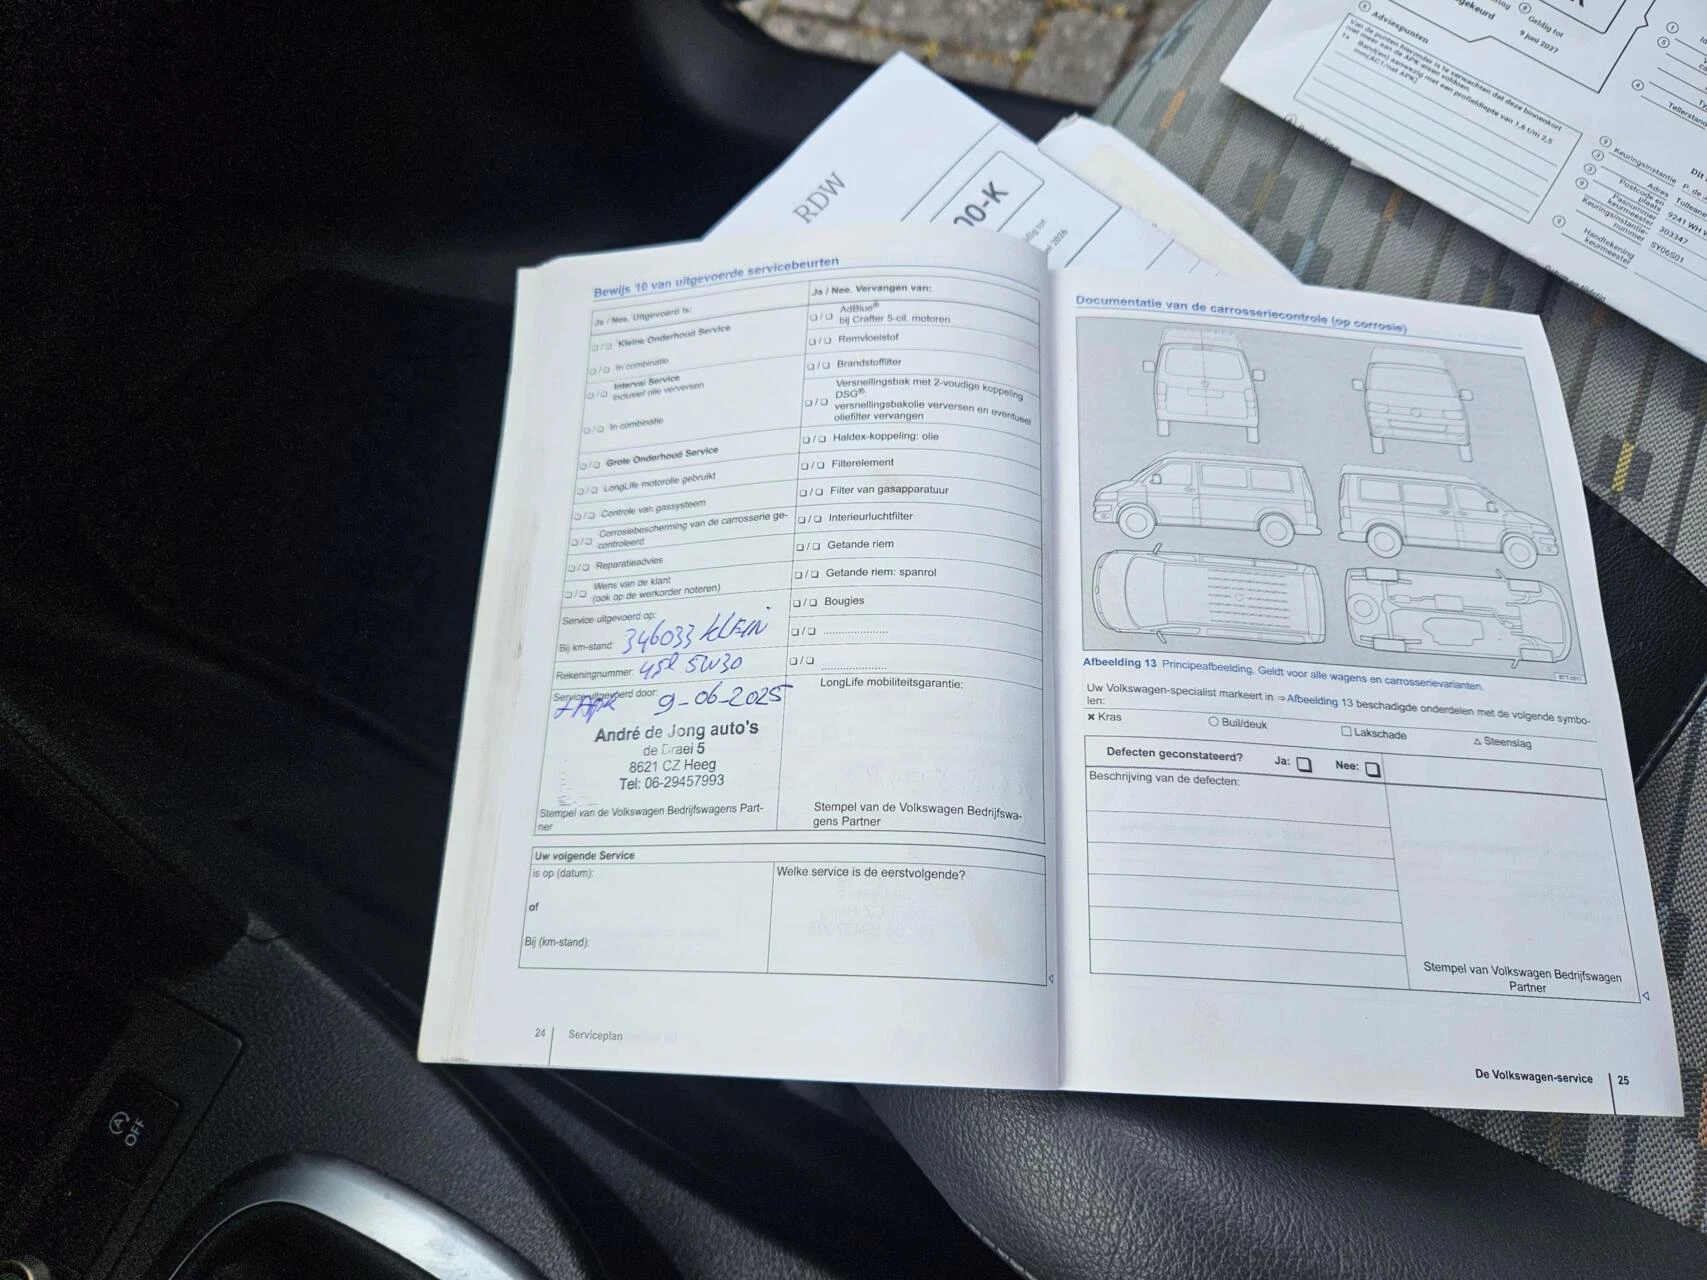 RDW
00-K
2026
gekeurd
Geldig tot
9 juni 2027
Adviespunten
Van de punten hieronder is te verwachten dat deze binnenkort
niet meer aan de APK eisen voldoen.
1x Band(en) aanwezig met een profieldiepte van 1,6 t/m 2,5
mm(AC1/nat APK)
Tellerstand
Keuringsinstantie P. de J
Adres Tolleanen
Postcode en
plaats 9241 WH
Pasnummer
keurmeester 303347
Keuringsinstantie-
nummer SY06S01
Handtekening
keurmeester
Bewijs 10 van uitgevoerde servicebeurten
Ja / Nee. Uitgevoerd is:
Kleine Onderhoud Service
In combinatie
Interval Service
inclusief olie verversen
In combinatie
Grote Onderhoud Service
LongLife motorolie gebruikt
Controle van gassysteem
Corrosiebescherming van de carrosserie ge-
controleerd
Reparatieadvies
Wens van de klant
(ook op de werkorder noteren)
Service uitgevoerd op:
Bij km-stand: 346033 KLEIN
Rekeningnummer: 5W30
Service uitgevoerd door:
APK 9-06-2025
André de Jong auto's
de Draei 5
8621 CZ Heeg
Tel: 06-29457993
Stempel van de Volkswagen Bedrijfswagens Part-
ner
Ja / Nee. Vervangen van:
AdBlue®
bij Crafter 5-cil. motoren
Remvloeistof
Brandstoffilter
Versnellingsbak met 2-voudige koppeling
DSG®:
versnellingsbakolie verversen en eventueel
oliefilter vervangen
Haldex-koppeling: olie
Filterelement
Filter van gasapparatuur
Interieurluchtfilter
Getande riem
Getande riem: spanrol
Bougies
LongLife mobiliteitsgarantie:
Stempel van de Volkswagen Bedrijfswa-
gens Partner
Uw volgende Service
is op (datum):
of
Bij (km-stand):
Welke service is de eerstvolgende?
24 Serviceplan
Documentatie van de carrosseriecontrole (op corrosie)
Afbeelding 13 Principeafbeelding. Geldt voor alle wagens en carrosserievarianten.
Uw Volkswagen-specialist markeert in ⇒Afbeelding 13 beschadigde onderdelen met de volgende symbo-
len:
× Kras ○ Buil/deuk □ Lakschade △ Steenslag
Defecten geconstateerd? Ja: Nee:
Beschrijving van de defecten:
Stempel van Volkswagen Bedrijfswagen
Partner
De Volkswagen-service 25
OFF